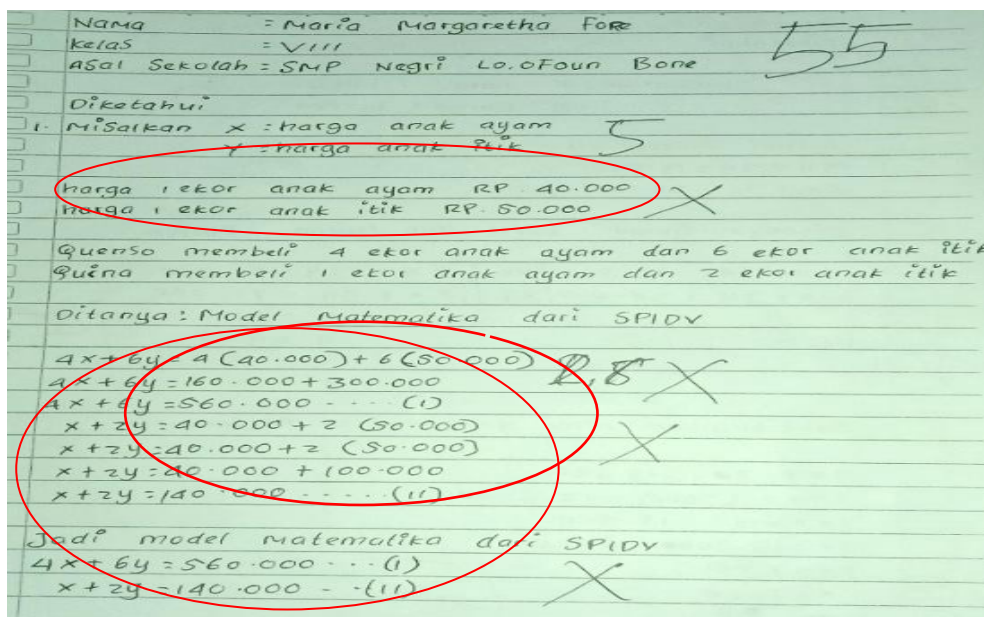 Nama = Maria Margaretha Fore
Kelas = VIII
Asal Sekolah = SMP Negri Lo.oFoun Bone
55
Diketahui
1. Misalkan x = harga anak ayam
y = harga anak itik
5
harga 1 ekor anak ayam RP 40.000
harga 1 ekor anak itik RP. 50.000
Quenso membeli 4 ekor anak ayam dan 6 ekor anak itik
Quina membeli 1 ekor anak ayam dan 2 ekor anak itik
Ditanya : Model Matematika dari SPlDV
4x + 6y = 4 (40.000) + 6 (50.000)
4x + 6y = 160.000 + 300.000
4x + 6y = 560.000 - - - - (1)
x + 2y = 40.000 + 2 (50.000)
x + 2y = 40.000 + 2 (50.000)
x + 2y = 40.000 + 100.000
x + 2y = 140.000 - - - - - (11)
Jadi model Matematika dari SPlDV
4x + 6y = 560.000 - - - (1)
x + 2y = 140.000 - - (11)